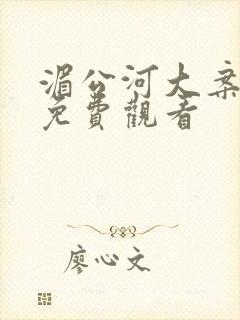 湄公河大案
免費觀看
廖心文